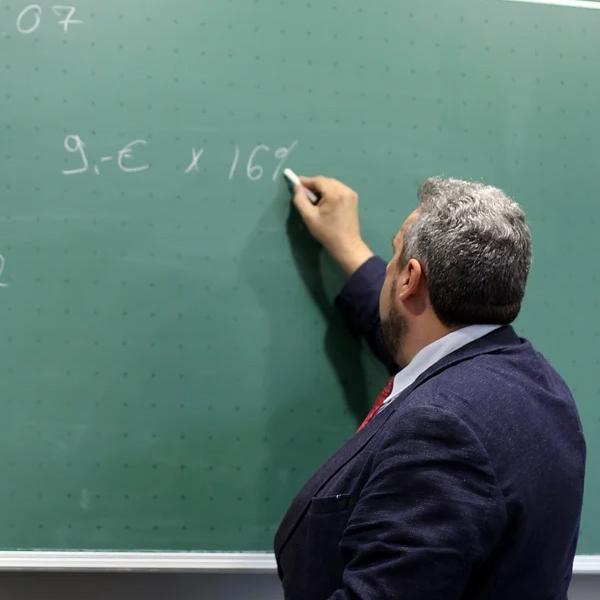 07
9,-€ x 16%
2